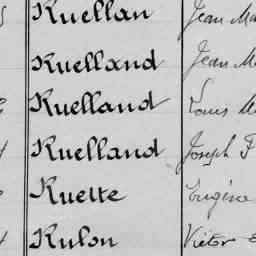 Ruellan Jean Ma
Ruelland Jean M
Ruelland Louis M
Ruelland Joseph F
Ruette Eugène
Rulon Victor